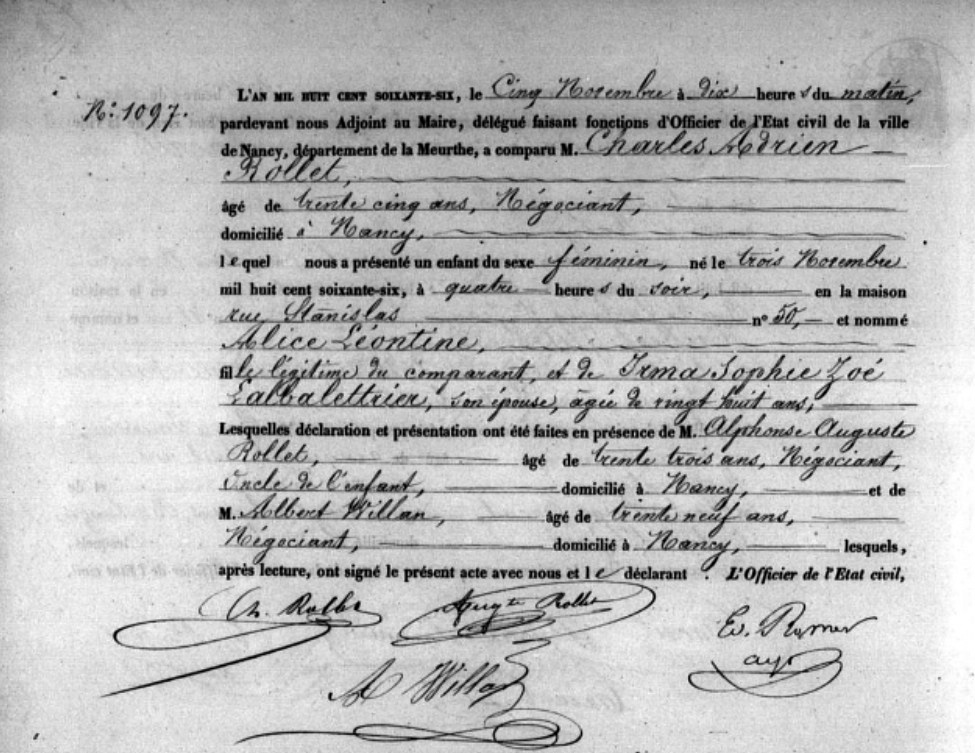 N: 1097.
L'AN MIL HUIT CENT SOIXANTE-SIX, le Cinq Novembre à dix heures du matin,
pardevant nous Adjoint au Maire, délégué faisant fonctions d'Officier de l'Etat civil de la ville
de Nancy, département de la Meurthe, a comparu M. Charles Adrien
Rollet,
âgé de trente cinq ans, Négociant,
domicilié à Nancy,
lequel nous a présenté un enfant du sexe féminin, né le trois Novembre
mil huit cent soixante-six, à quatre heures du soir, en la maison
rue Stanislas n° 50, et nommé
Alice Léontine,
fille légitime du comparant, et de Irma Sophie Zoé
Lalbalettrier, son épouse, âgée de vingt huit ans,
Lesquelles déclaration et présentation ont été faites en présence de M. Alphonse Auguste
Rollet, âgé de trente trois ans, Négociant,
Oncle de l'enfant, domicilié à Nancy, et de
M. Albert Willan, âgé de trente neuf ans,
Négociant, domicilié à Nancy, lesquels,
après lecture, ont signé le présent acte avec nous et le déclarant. L'Officier de l'Etat civil,
Ch. Rollet Aug.te Rollet
A Willan